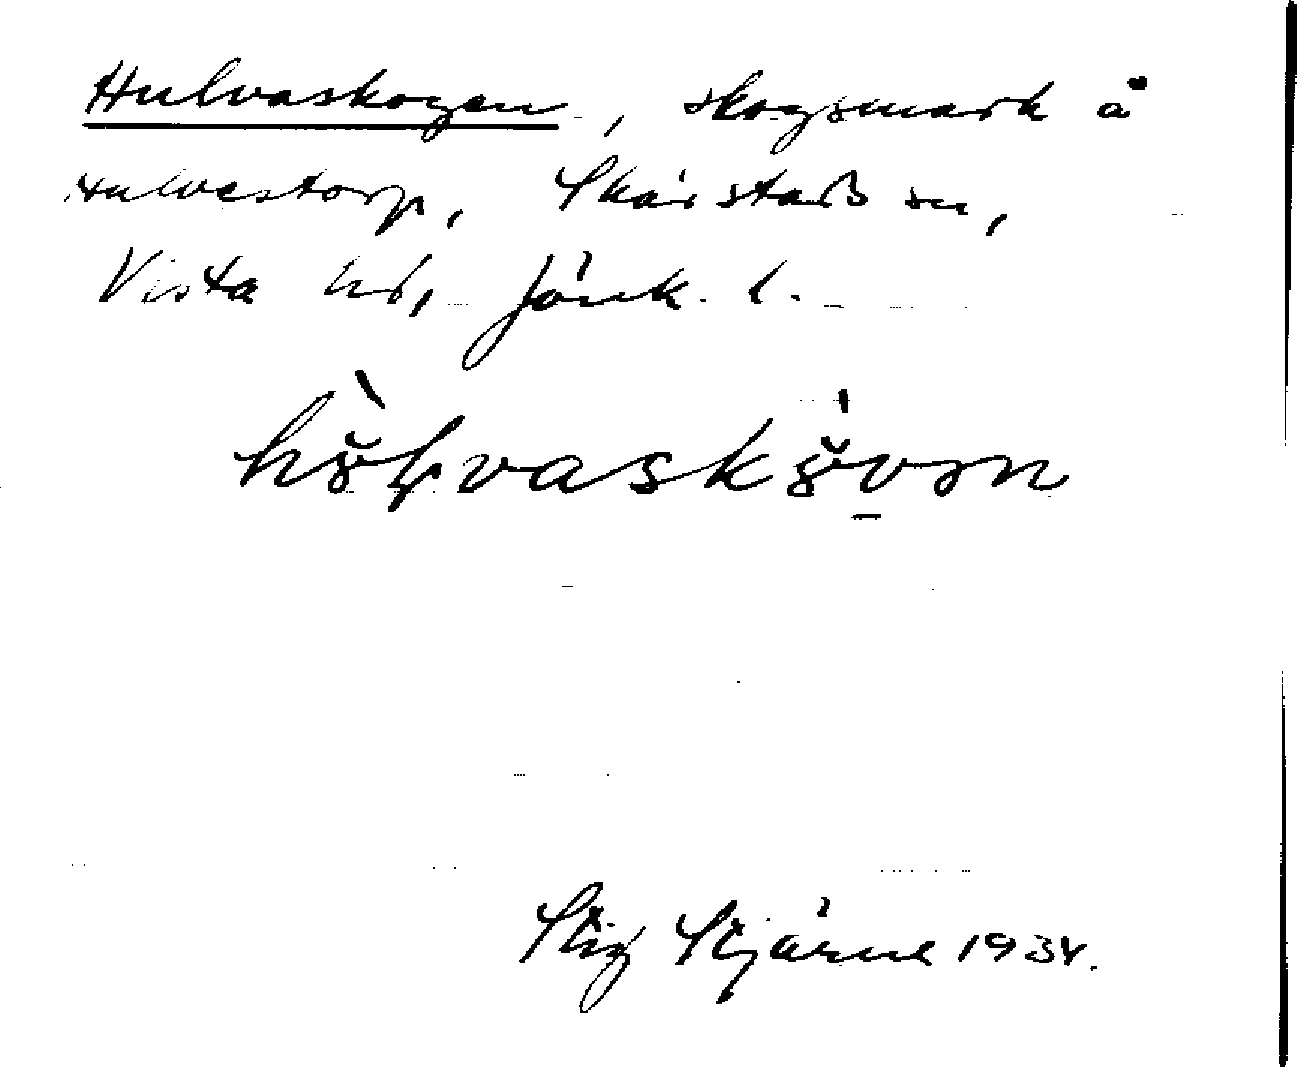 Hulvaskogen, skogsmark å
Hulvestorp, Skärstads sn,
Vista hd, Jönk. l.
Stig Stjärne 1934.